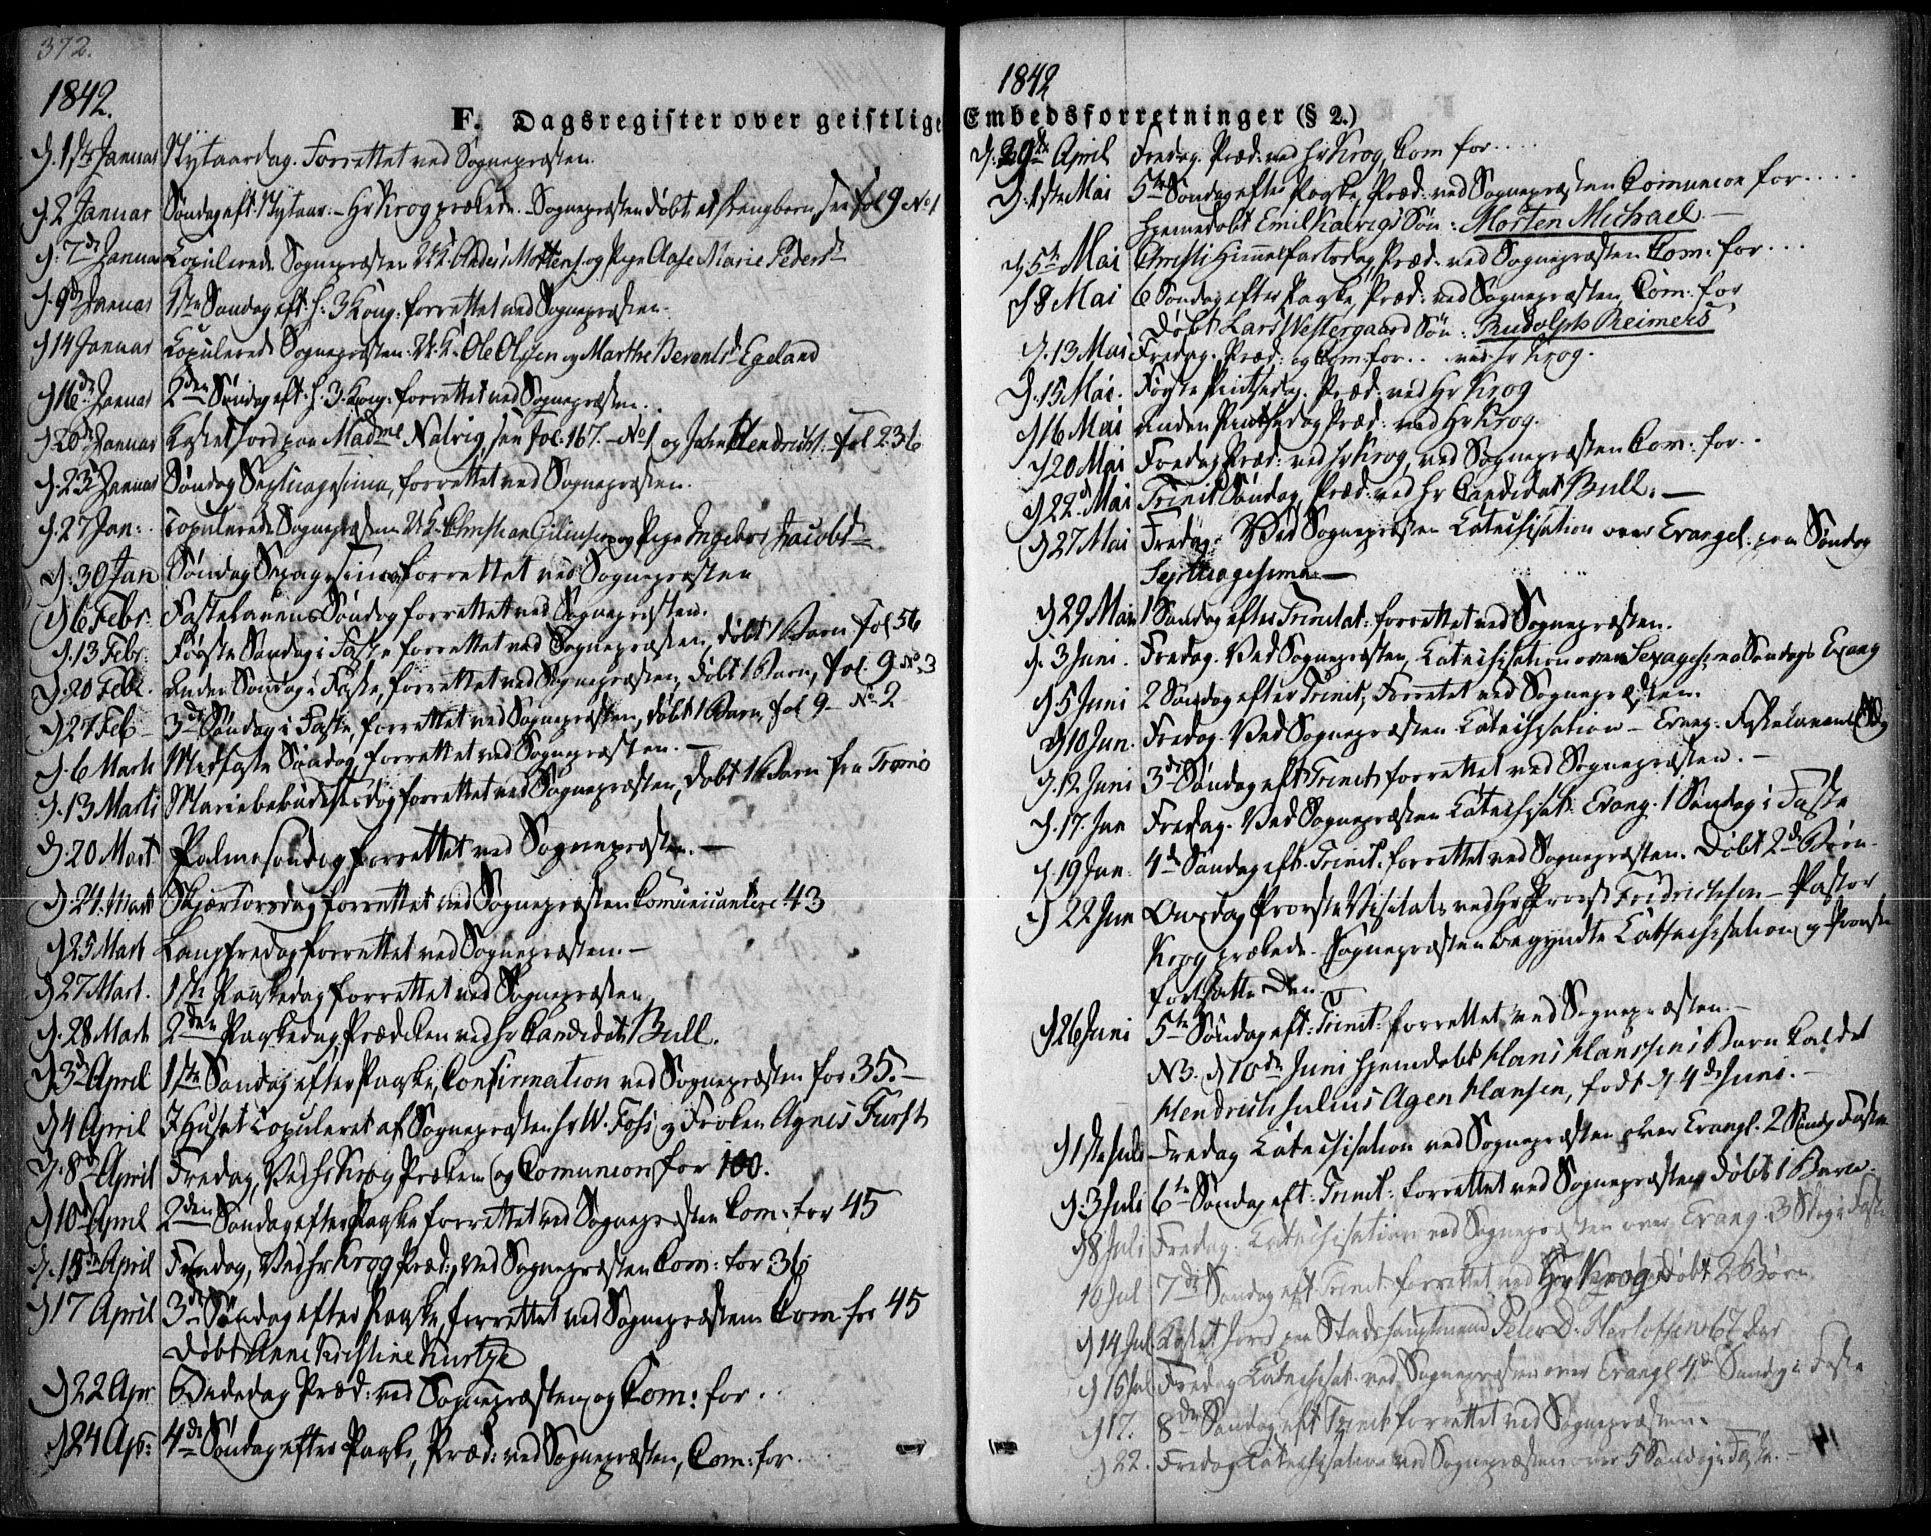 372.
1842.
F. Dagsregister over geistlige
D. 1ste Januar Nytaarsdag. Forrettet ved Sognepræsten.
D. 2 Januar Søndag eft. Nytaar. Hr Krog prækede. Sognepræsten døbt et Drengbarn see fol 9 No 1
D. 7de Januar Copulerede Sognepræsten U.K. Anders Mortens. og Pige Aase Marie Pedersd
D. 9de Januar 1ste Søndag eft. H. 3 Kong: forrettet ved Sognepræsten.
D 14 Januar Kopulerede Sognepræsten U.K. Ole Olsen og Marthe Berentsd Egeland
D 16de Januar 2den Søndag eft. H. 3. Kong: forrettet ved Sognepræsten.
D 20de Januar Kastet Jord paa Madme Nalvig, see fol. 167. No 1 og John Hendrichs. fol 236
D. 23 Januar Søndag Septuagesima, forrettet ved Sognepræsten.
D. 27 Jan: Copulerede Sognepræsten U.K. Christian og Pige Ingebor Jacobsd
D. 30 Jan Søndag Sexagesima forrettet ved Sognepræsten
D 6 Febr. Fastelavens Søndag forrettet ved Sognepræsten.
D. 13 Febr. Første Søndag i Faste forrettet ved Sognepræsten, døbt 1 Barn fol 56
D. 20 Febr. Anden Søndag i Faste, forrettet ved Sognepræsten, døbt 1 Barn, fol. 9 No 3
D 27 Feb 3de Søndag i Faste, forrettet ved Sognepræsten, døbt 1 Barn, fol 9 No 2
D. 6 Marts Midfaste Søndag forrettet ved Sognepræsten.
D. 13 Marti Mariebebudelsesdag forrettet ved Sognepræsten, døbt 1 Barn fra Tromø
D. 20 Mart Palmesøndag forrettet ved Sognepræsten.
D. 24. Mart Skjærtorsdag forrettet ved Sognepræsten Comunicantere 43
D 25 Mart Langfredag forrettet ved Sognepræsten.
D 27 Mart. 1ste Paaskedag forrettet ved Sognepræsten
D. 28 Mart 2den Paaskedag Prædiken ved Hr Candidat Bull.
D 3de April 1ste Søndag efter Paaske, Confirmation ved Sognepræsten for 35.
D 4 April I Huset Copuleret af Sognepræsten Hr W. Foss og Frøken Agnes Furst
D. 8de April Fredag, Ved Hr Krog Præken og Comunion for 100.
D 10de April 2den Søndag efter Paaske forrettet ved Sognepræsten Com: for 45
D. 15de April Fredag, Ved Hr Krog Præd:, ved Sognepræsten Com: for 36
D 17 April 3de Søndag efter Paaske, forrettet ved Sognepræsten Com for 45
Døbt Anne Kristine Kurtze
D 22 Apr Bededag Præd: ved Sognepræsten og Com: for .
D 24 Ap: 4de Søndag efter Paaske, Præd: ved Sognepræsten, Com: for .
1842
Embedsforretninger (§ 2.)
D. 29de April Fredag. Præd: ved Hr Krog, Com for . . . .
D. 1ste Mai 5te Søndag efter Paaske, Præd: ved Sognepræsten Comunion for . . . .
Hjemmedøbt Emil Kalvigs Søn: Morten Michael
D 5te Mai Christi Himmelfartsdag, Præd: ved Sognepræsten Com: for . . .
D 8 Mai 6 Søndag efter Paaske, Præd: ved Sognepræsten, Com: for
Døbt Lars Westergaard Søn: Rudolph Reimers
D. 13 Mai Fredag. Præd: og Com: for . . ved Hr Krog.
D. 15 Mai. Første Pintsedag. Præd: ved Hr Krog
D 16 Mai Anden Pintsedag Præd: ved Hr Krog.
D 20 Mai Fredag Præd: ved Hr Krog, ved Sognepræsten Com: for . .
D 22de Mai Trinit Søndag, Præd: ved Hr Candidat Bull.
D 27 Mai Fredag. Ved Sognepræsten Catechisation over Evangel: paa Søndag
Septuagesima
D 29 Mai 1 Søndag efter Trinitat: forrettet ved Sognepræsten.
D. 3 Juni. Fredag. Ved Sognepræsten, Catechisation over Sexagesima Søndags Evang
D 5 Juni 2 Søndag efter Trinit, Forrettet ved Sognepræsten.
D 10 Jun. Fredag. Ved Sognepræsten Catechisation Evang. Fastelavens
D. 12 Juni 3de Søndag eft Trinit, forrettet ved Sognepræsten.
D. 17. Jun Fredag. Ved Sognepræsten Catechisat: Evang. 1 Søndag i Faste
D. 19 Jun 4de Søndag eft: Trinit: forrettet ved Sognepræsten. Døbt 2de Børn.
D 22 Jun Onsdag Provste Visitats ved Hr Provst Fredrichsen Pastor
Krog prækede. Sognepræsten begyndte Catechisation og Provsten
fortsatte den.
D 26 Juni 5te Søndag eft: Trinit: forrettet ved Sognepræsten.
NB. D 10de Juni hjemdøbt Hans Hanssens Barn kaldet
Hendrich Julius Agen Hansen, født d 4de Juni.
D 1ste Juli Fredag Catechisation ved Sognepræsten over Evangl. 2 Søndg Faste
D. 3 Juli 6te Søndag eft: Trinit: forrettet ved Sognepræsten døbt 1 Barn.
D 8 Juli Fredag. Catechisation ved Sognepræsten over Evang. 3 Sdg i Faste
10 Jul 7de Søndag eft Trinit. forrettet ved Hr Krog, døbt 2 Børn.
D 14 Jul Kastet Jord paa Stadshauptmand Peter D. Herlofsen 67 Aar
D 15 Jul Fredag Catechisat. ved Sognepræsten over Evangl 4de Søndag i Faste
D 17. 8de Søndag eft Trinit forrettet ved Sognepræsten.
D 22. Fredag Catechisation ved Sognepræsten over 5 Søndag i Faste.